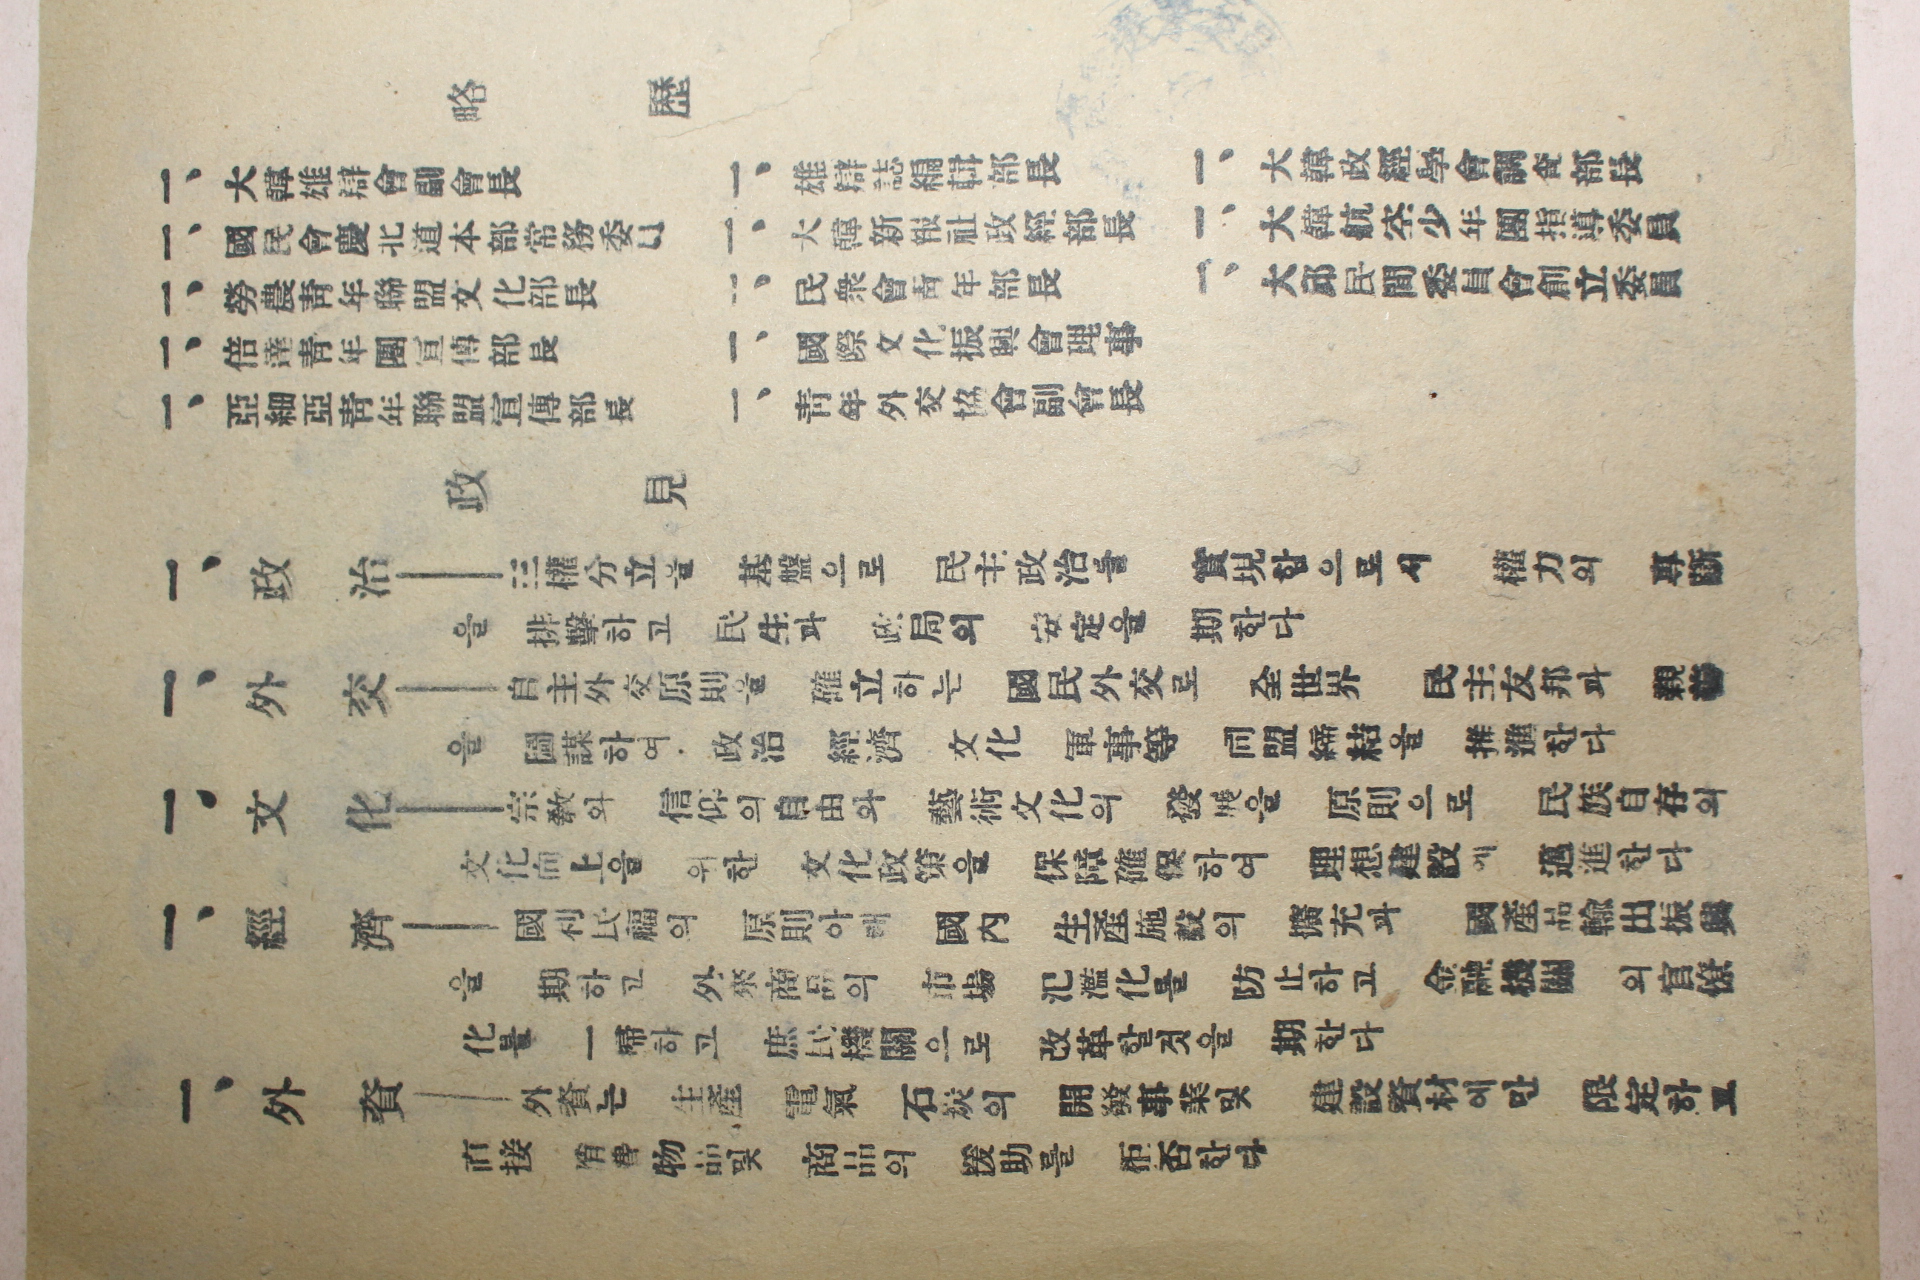 略歷
一、大韓雄辯會副會長
一、國民會慶北道本部常務委員
一、勞農靑年聯盟文化部長
一、倍達靑年團宣傳部長
一、亞細亞靑年聯盟宣傳部長
一、雄辯誌編輯部長
一、大韓新報社政經部長
一、民衆會靑年部長
一、國際文化振興會理事
一、靑年外交協會副會長
一、大韓政經學會調査部長
一、大韓航空少年團指導委員
一、大邱民間委員會創立委員
政見
一、政治―三權分立을 基盤으로 民主政治를 實現함으로서 權力의 專斷
을 排擊하고 民生과 政局의 安定을 期한다
一、外交―自主外交原則을 確立하는 國民外交로 全世界 民主友邦과 親善
을 圖謀하여 政治 經濟 文化 軍事等 同盟締結을 推進한다
一、文化―宗敎와 信仰의自由와 藝術文化의 發展을 原則으로 民族自存의
文化向上을 위한 文化政策을 保障確保하여 理想建設에 邁進한다
一、經濟―國利民福의 原則아래 國內 生產施設의 擴充과 國產品輸出振興
을 期하고 外來商品의 市場 氾濫化를 防止하고 金融機關의官僚
化를 一掃하고 庶民機關으로 改革할것을 期한다
一、外資―外資는 生產 電氣 石炭의 開發事業및 建設資材에만 限定하고
直接 消費物品및 商品의 援助를 拒否한다